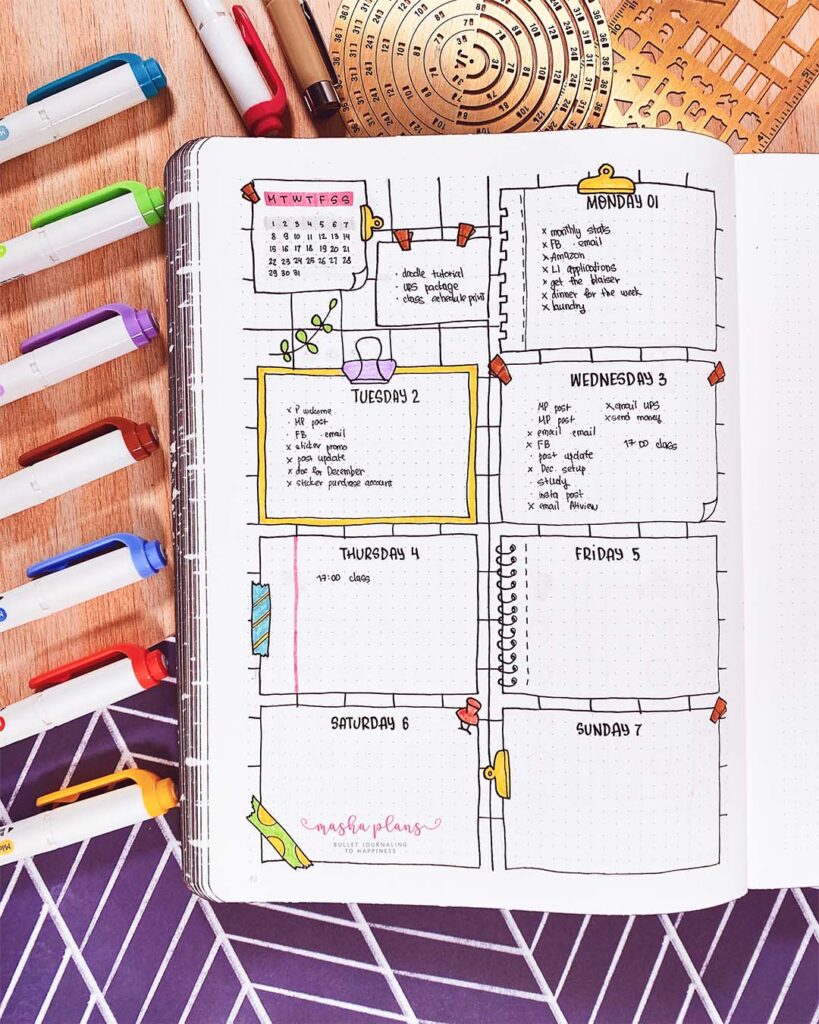 M T W T F S S
1 2 3 4 5 6 7
8 9 10 11 12 13 14
15 16 17 18 19 20 21
22 23 24 25 26 27 28
29 30 31
· doodle tutorial
· UPS package
· class schedule print
MONDAY 01
x monthly stats
x FB · email
x Amazon
x LI applications
x get the blaiser
x dinner for the week
x laundry
TUESDAY 2
x P welcome
· MP post
· FB · email
x sticker promo
x post update
x doc for December
x sticker purchase account
WEDNESDAY 3
· MP post
· MP post
x email · email
x FB
· post update
x Dec. setup
· study
· insta post
x email
x email UPS
x send money
17:00 class
THURSDAY 4
17:00 class
FRIDAY 5
SATURDAY 6
masha plans
BULLET JOURNALING
TO HAPPINESS
SUNDAY 7